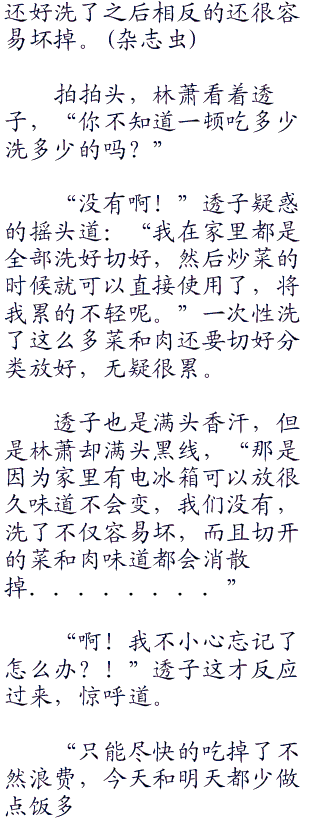 还好洗了之后相反的还很容
易坏掉。(杂志虫)
拍拍头，林萧看着透
子，“你不知道一顿吃多少
洗多少的吗？”
“没有啊！”透子疑惑
的摇头道：“我在家里都是
全部洗好切好，然后炒菜的
时候就可以直接使用了，将
我累的不轻呢。”一次性洗
了这么多菜和肉还要切好分
类放好，无疑很累。
透子也是满头香汗，但
是林萧却满头黑线，“那是
因为家里有电冰箱可以放很
久味道不会变，我们没有，
洗了不仅容易坏，而且切开
的菜和肉味道都会消散
掉．．．．．．．．”
“啊！我不小心忘记了
怎么办？！”透子这才反应
过来，惊呼道。
“只能尽快的吃掉了不
然浪费，今天和明天都少做
点饭多